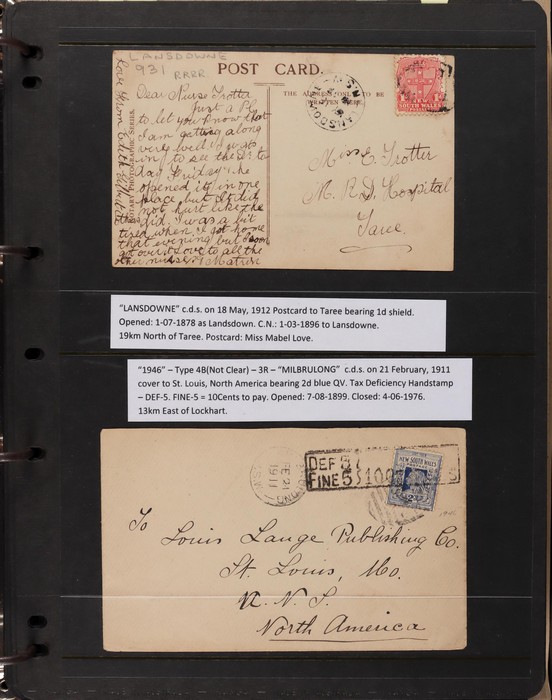 LANSDOWNE
931 RRRR
POST CARD.
THE ADDRESS ONLY TO BE
WRITTEN HERE.
Dear Nurse Trotta
Just a P.C.
to let you know that
I am getting along
very well. I was
in to see the Dr to
day Friday & he
opened it in one
place but it did
not hurt like the
did. I was a bit
tired when I got home
that evening but soon
got over it Love to all the
other nurses & Matron
Love from Edith White
ROTARY PHOTOGRAPHIC SERIES
LANSDOWNE
N.S.W
SOUTH WALES
Miss E. Trotter
M. R. D. Hospital
Taree.
“LANSDOWNE” c.d.s. on 18 May, 1912 Postcard to Taree bearing 1d shield.
Opened: 1-07-1878 as Landsdown. C.N.: 1-03-1896 to Lansdowne.
19km North of Taree. Postcard: Miss Mabel Love.
“1946” – Type 4B(Not Clear) – 3R – “MILBRULONG” c.d.s. on 21 February, 1911
cover to St. Louis, North America bearing 2d blue QV. Tax Deficiency Handstamp
– DEF-5. FINE-5 = 10Cents to pay. Opened: 7-08-1899. Closed: 4-06-1976.
13km East of Lockhart.
FE 21
1911
N.S.W
DEF 5
FINE 5 10
NEW SOUTH WALES
To
Louis Lange Publishing Co.
St. Louis, Mo.
U. N. S.
North America